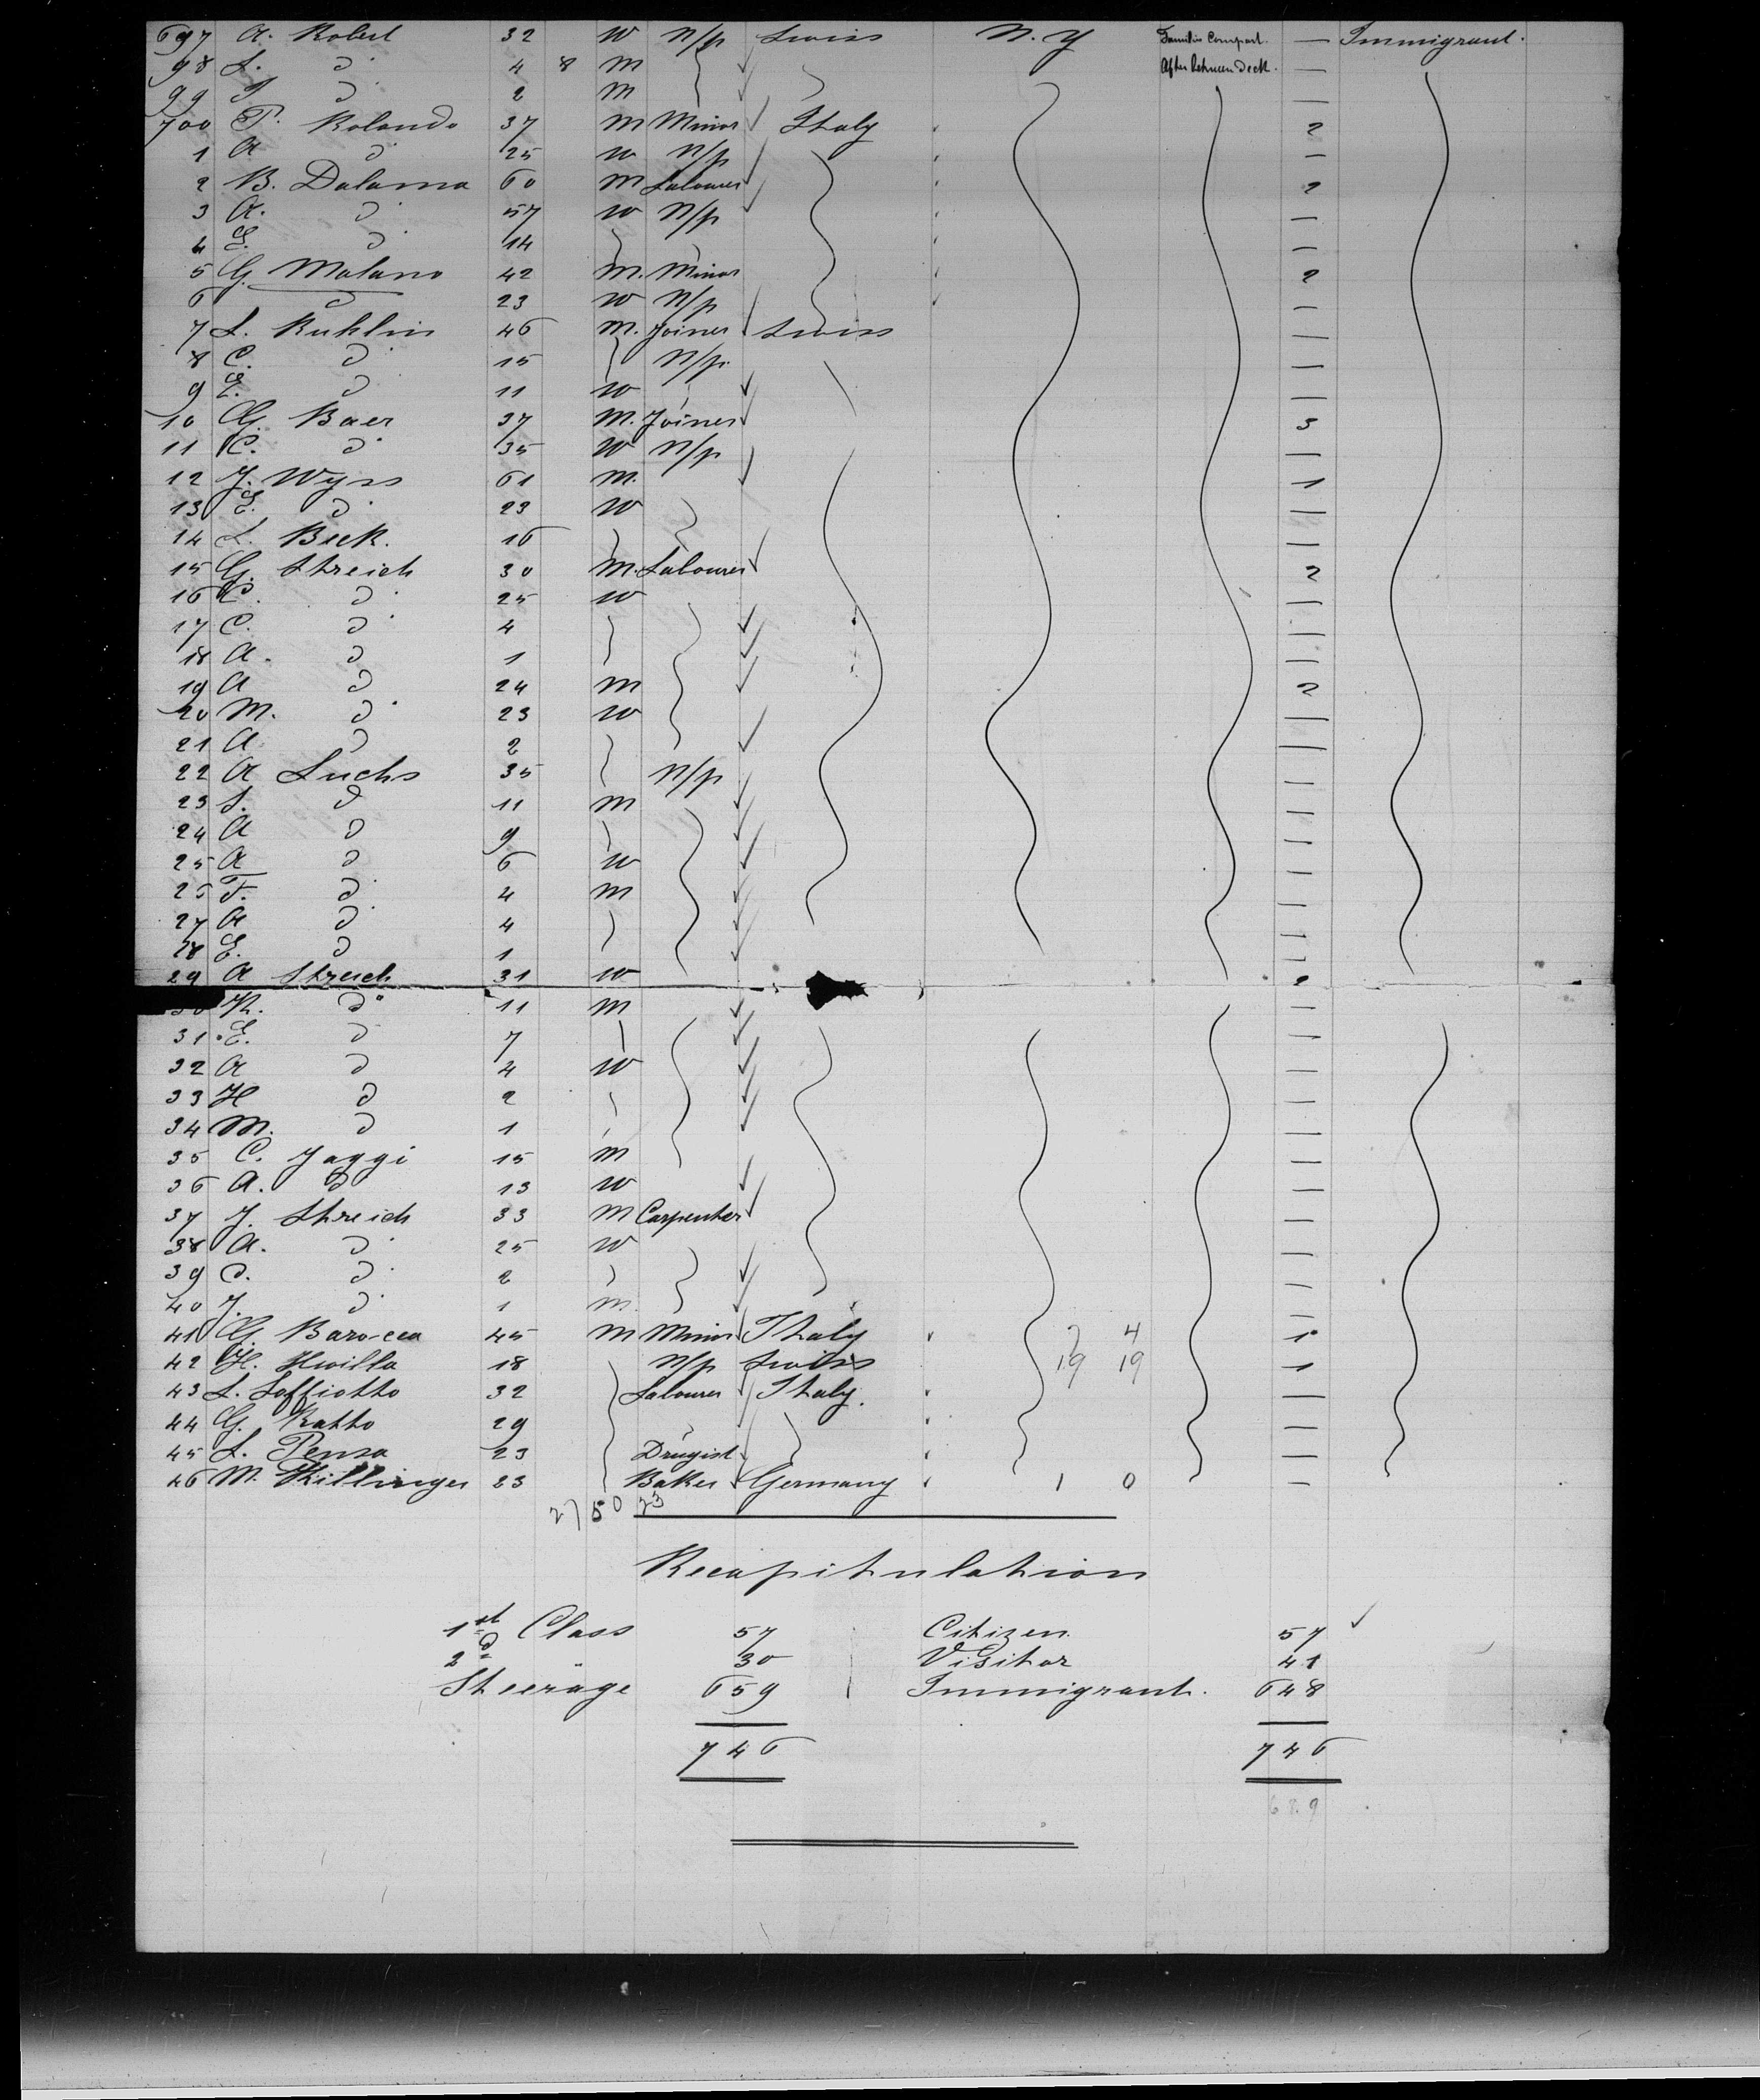 697 A. Robert 32 W n/p Swiss N.Y Families Compart. — Immigrant.
98 L. d° 4 8 M After between deck. —
99 d° 2 M —
700 P. Rolando 37 M Minor Italy 2
1 A d° 25 W n/p —
2 B. Dalama 60 M Labourer 2
3 A. d° 57 W n/p —
4 E. d° 14 —
5 G. Malano 42 M. Minor 2
6 d° 23 W n/p —
7 L. Kuhlin 46 M. Joiner Swiss —
8 C. d° 15 n/p. —
9 E. d° 11 W —
10 G. Baer 37 M. Joiner 3
11 C. d° 35 W n/p —
12 J. Wyss 61 M. 1
13 E. d° 23 W —
14 L. Beck. 16 —
15 G. Streich 30 M. Labourer 2
16 C. d° 25 W —
17 C. d° 4 —
18 A. d° 1 —
19 A d° 24 M 2
20 M. d° 23 W —
21 A d° 2 —
22 A Luchs 35 n/p —
23 S. d° 11 M —
24 A d° 9 —
25 A d° 6 W —
26 F. d° 4 M —
27 A d° 4 —
28 E. d° 1 —
29 A Streich 31 W 2
30 K. d° 11 M —
31 E. d° 7 —
32 A d° 4 W —
33 H d° 2 —
34 M. d° 1 —
35 C. Jaggi 15 M —
36 A. d° 13 W —
37 J. Streich 33 M Carpenter —
38 A. d° 25 W —
39 C. d° 2 —
40 J. d° 1 M. —
41 G. Baro-cea 45 M Minor Italy 2 4 1
42 H. Hwilla 18 n/p Swiss 19 19 1
43 L. Loffiotto 32 Labourer Italy. —
44 G. Ratto 29 —
45 L. Pensa 23 Drugist —
46 M. Killinger 23 Baker Germany 1 0 —
27 50 23
Recapitulation
1st Class 57 Citizen 57
2d " 30 Visitor 41
Steerage 659 Immigrant. 648
746 746
689